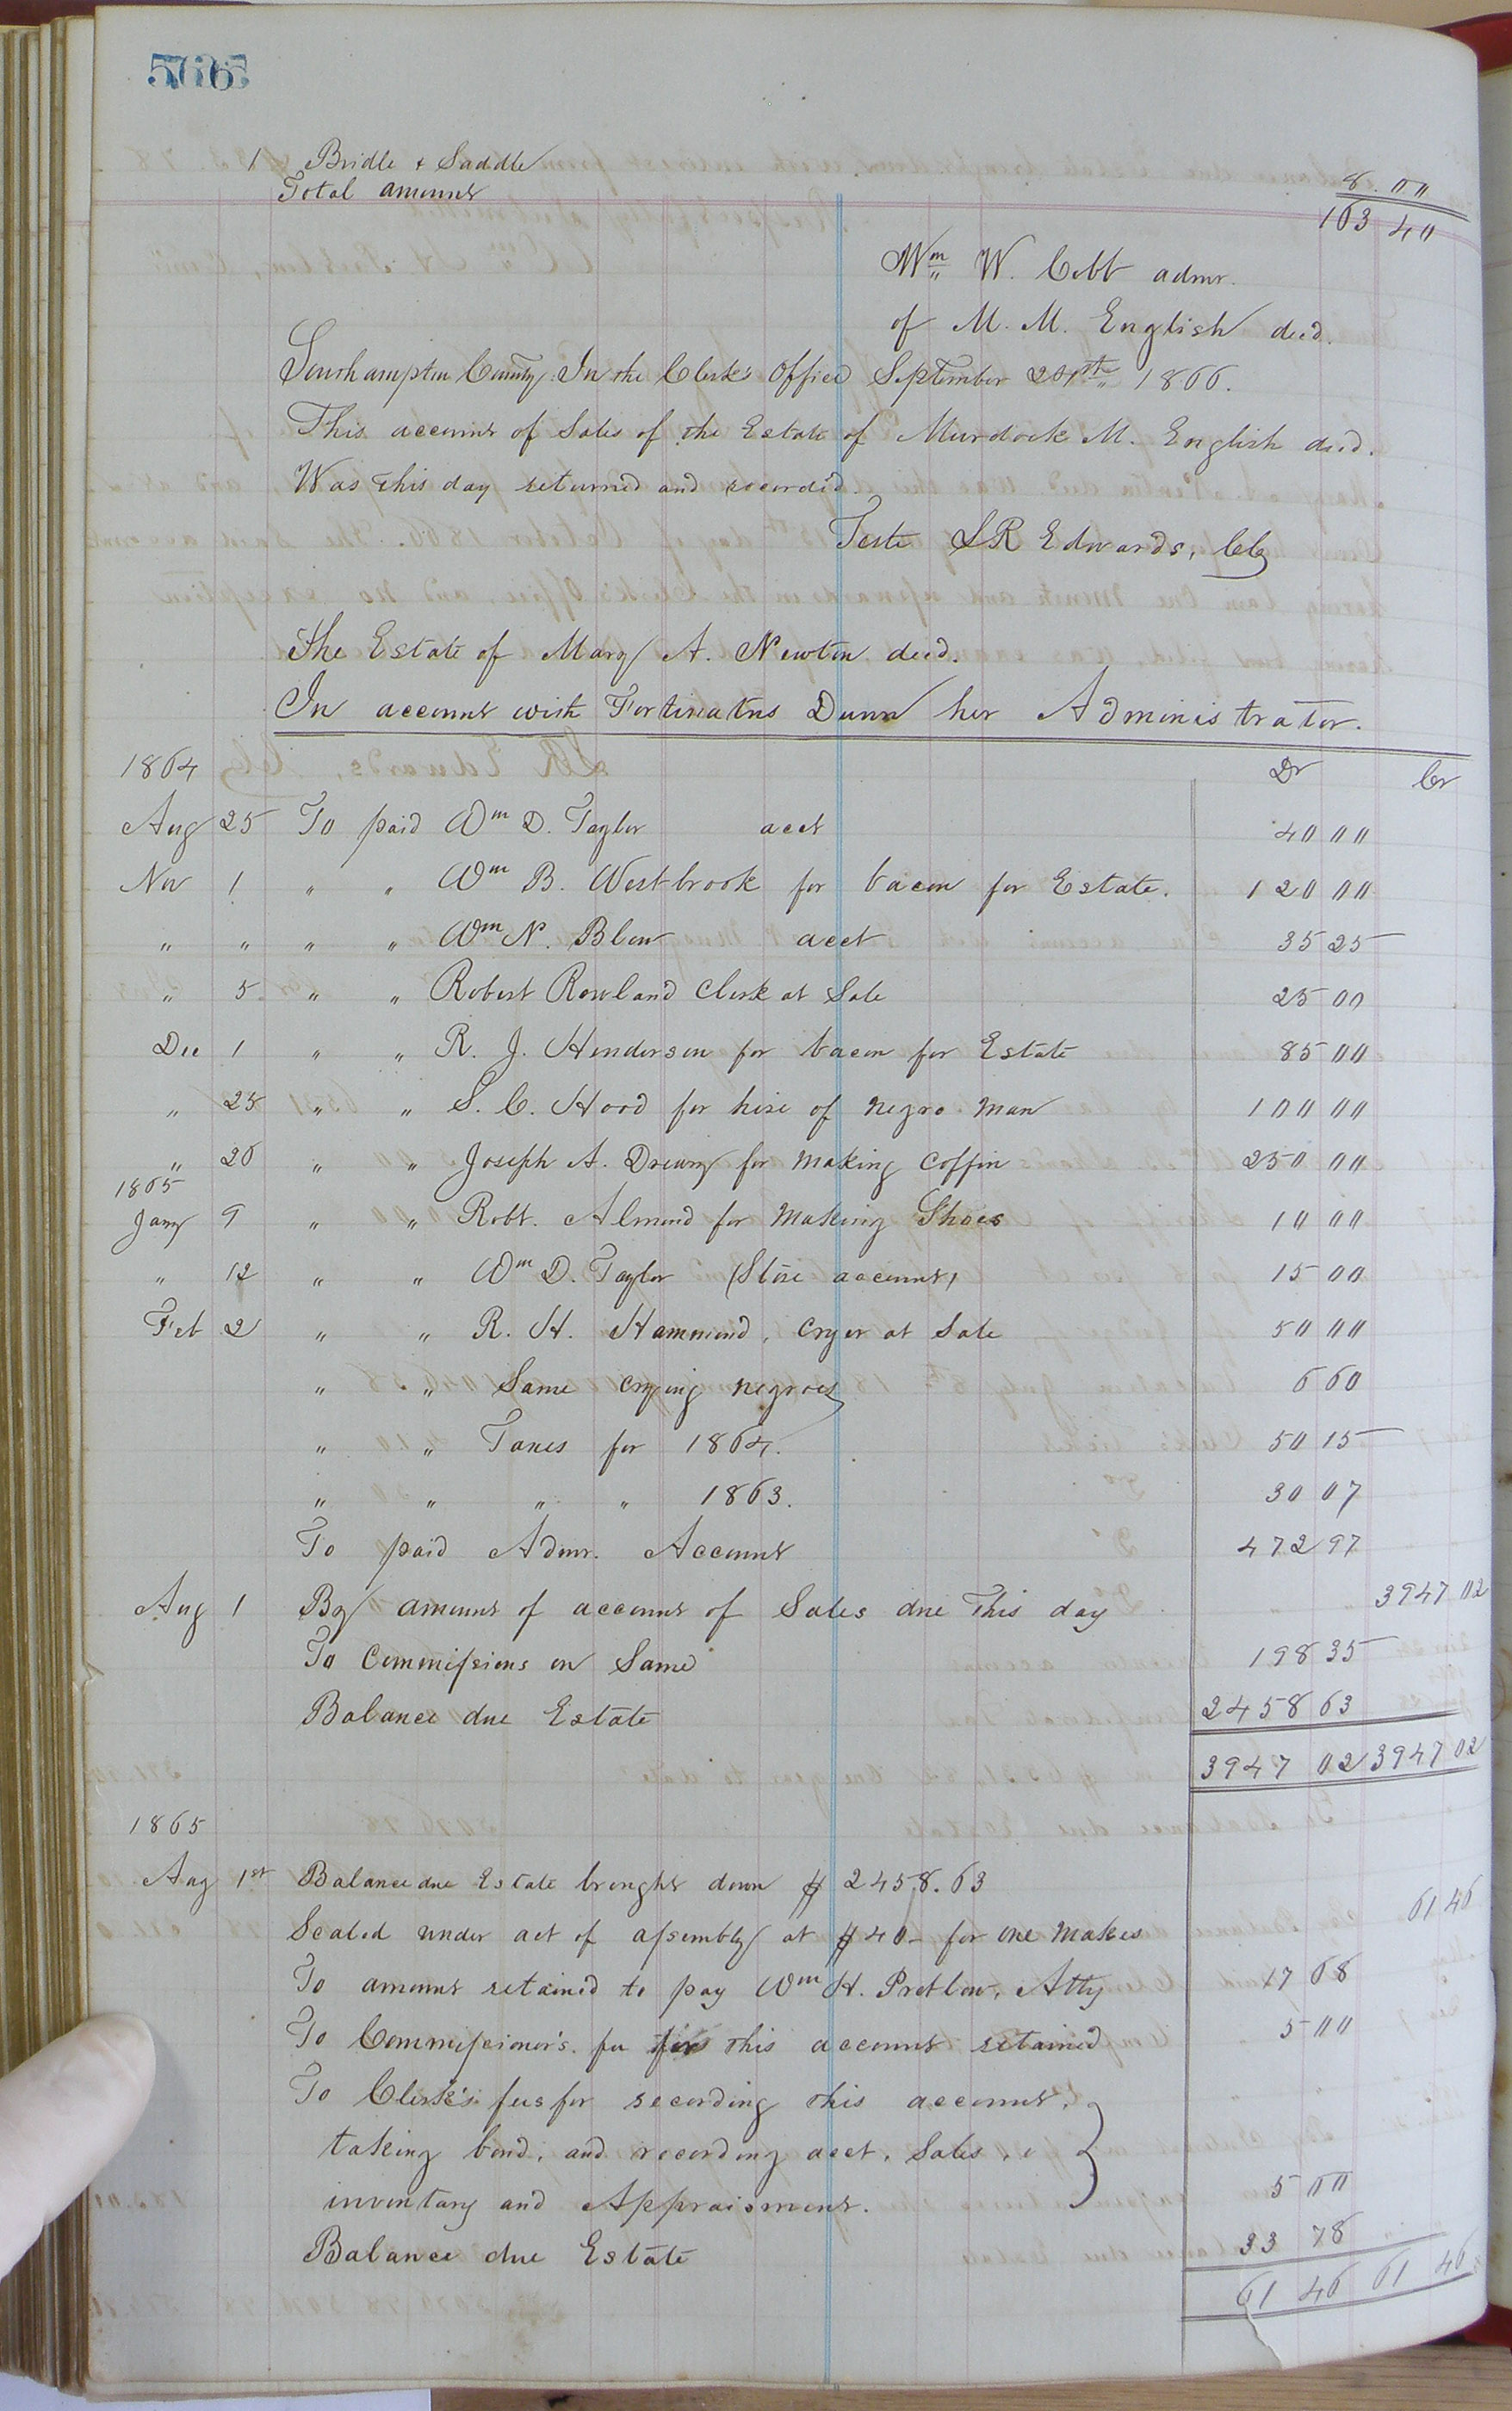 1 Bridle & Saddle 8.00
Total amount 163 40
Wm W. Cobb admr.
of M. M. English decd.
Southampton County. In the Clerk's Office September 1866.
This account of Sales of the Estate of Murdock M. English decd.
Was this day returned and recorded.
Teste LR Edwards, Clk
The Estate of Mary A. Newton decd.
In account with Fortinatus Dunn her Administrator.
1864 Dr Cr
Aug 25 To paid Wm D. Taylor acct 40 00
Nov 1 " " Wm B. Westbrook for bacon for Estate. 120 00
" " " " Wm N. Blow acct 35 25
" 5 " " Robert Rowland Clerk at Sale 25 00
Dec 1 " " R. J. Henderson for bacon for Estate 85 00
" 25 " " S. C. Hood for hire of negro man 100 00
" 26 " " Joseph A. Drewry for making coffin 250 00
1865
Jany 9 " " Robt. Almond for Making Shoes 10 00
" 12 " " Wm D. Taylor (Store account) 15 00
Feb 2 " " R. H. Hammond, cryer at Sale 50 00
" " Same crying negroes 6 60
" " Taxes for 1864. 50 15
" " " " 1863. 30 07
To paid Admr. Account 472 97
Aug 1 By amount of account of Sales due This day " " 3947 02
To Commissions on Same 198 35
Balance due Estate 2458 63
3947 02 3947 02
1865
Aug 1st Balance due Estate brought down $2458.63
Scaled under act of assembly at $40- for one makes 61 46
To amount retained to pay Wm H. Pretlow, Atty 17 68
To Commissioner's fee for this account retained 5 00
To Clerk's fees for recording this account,
taking bond, and recording acct. Sales,
inventory and Appraisment. 5 00
Balance due Estate 33 78
61 46 61 46